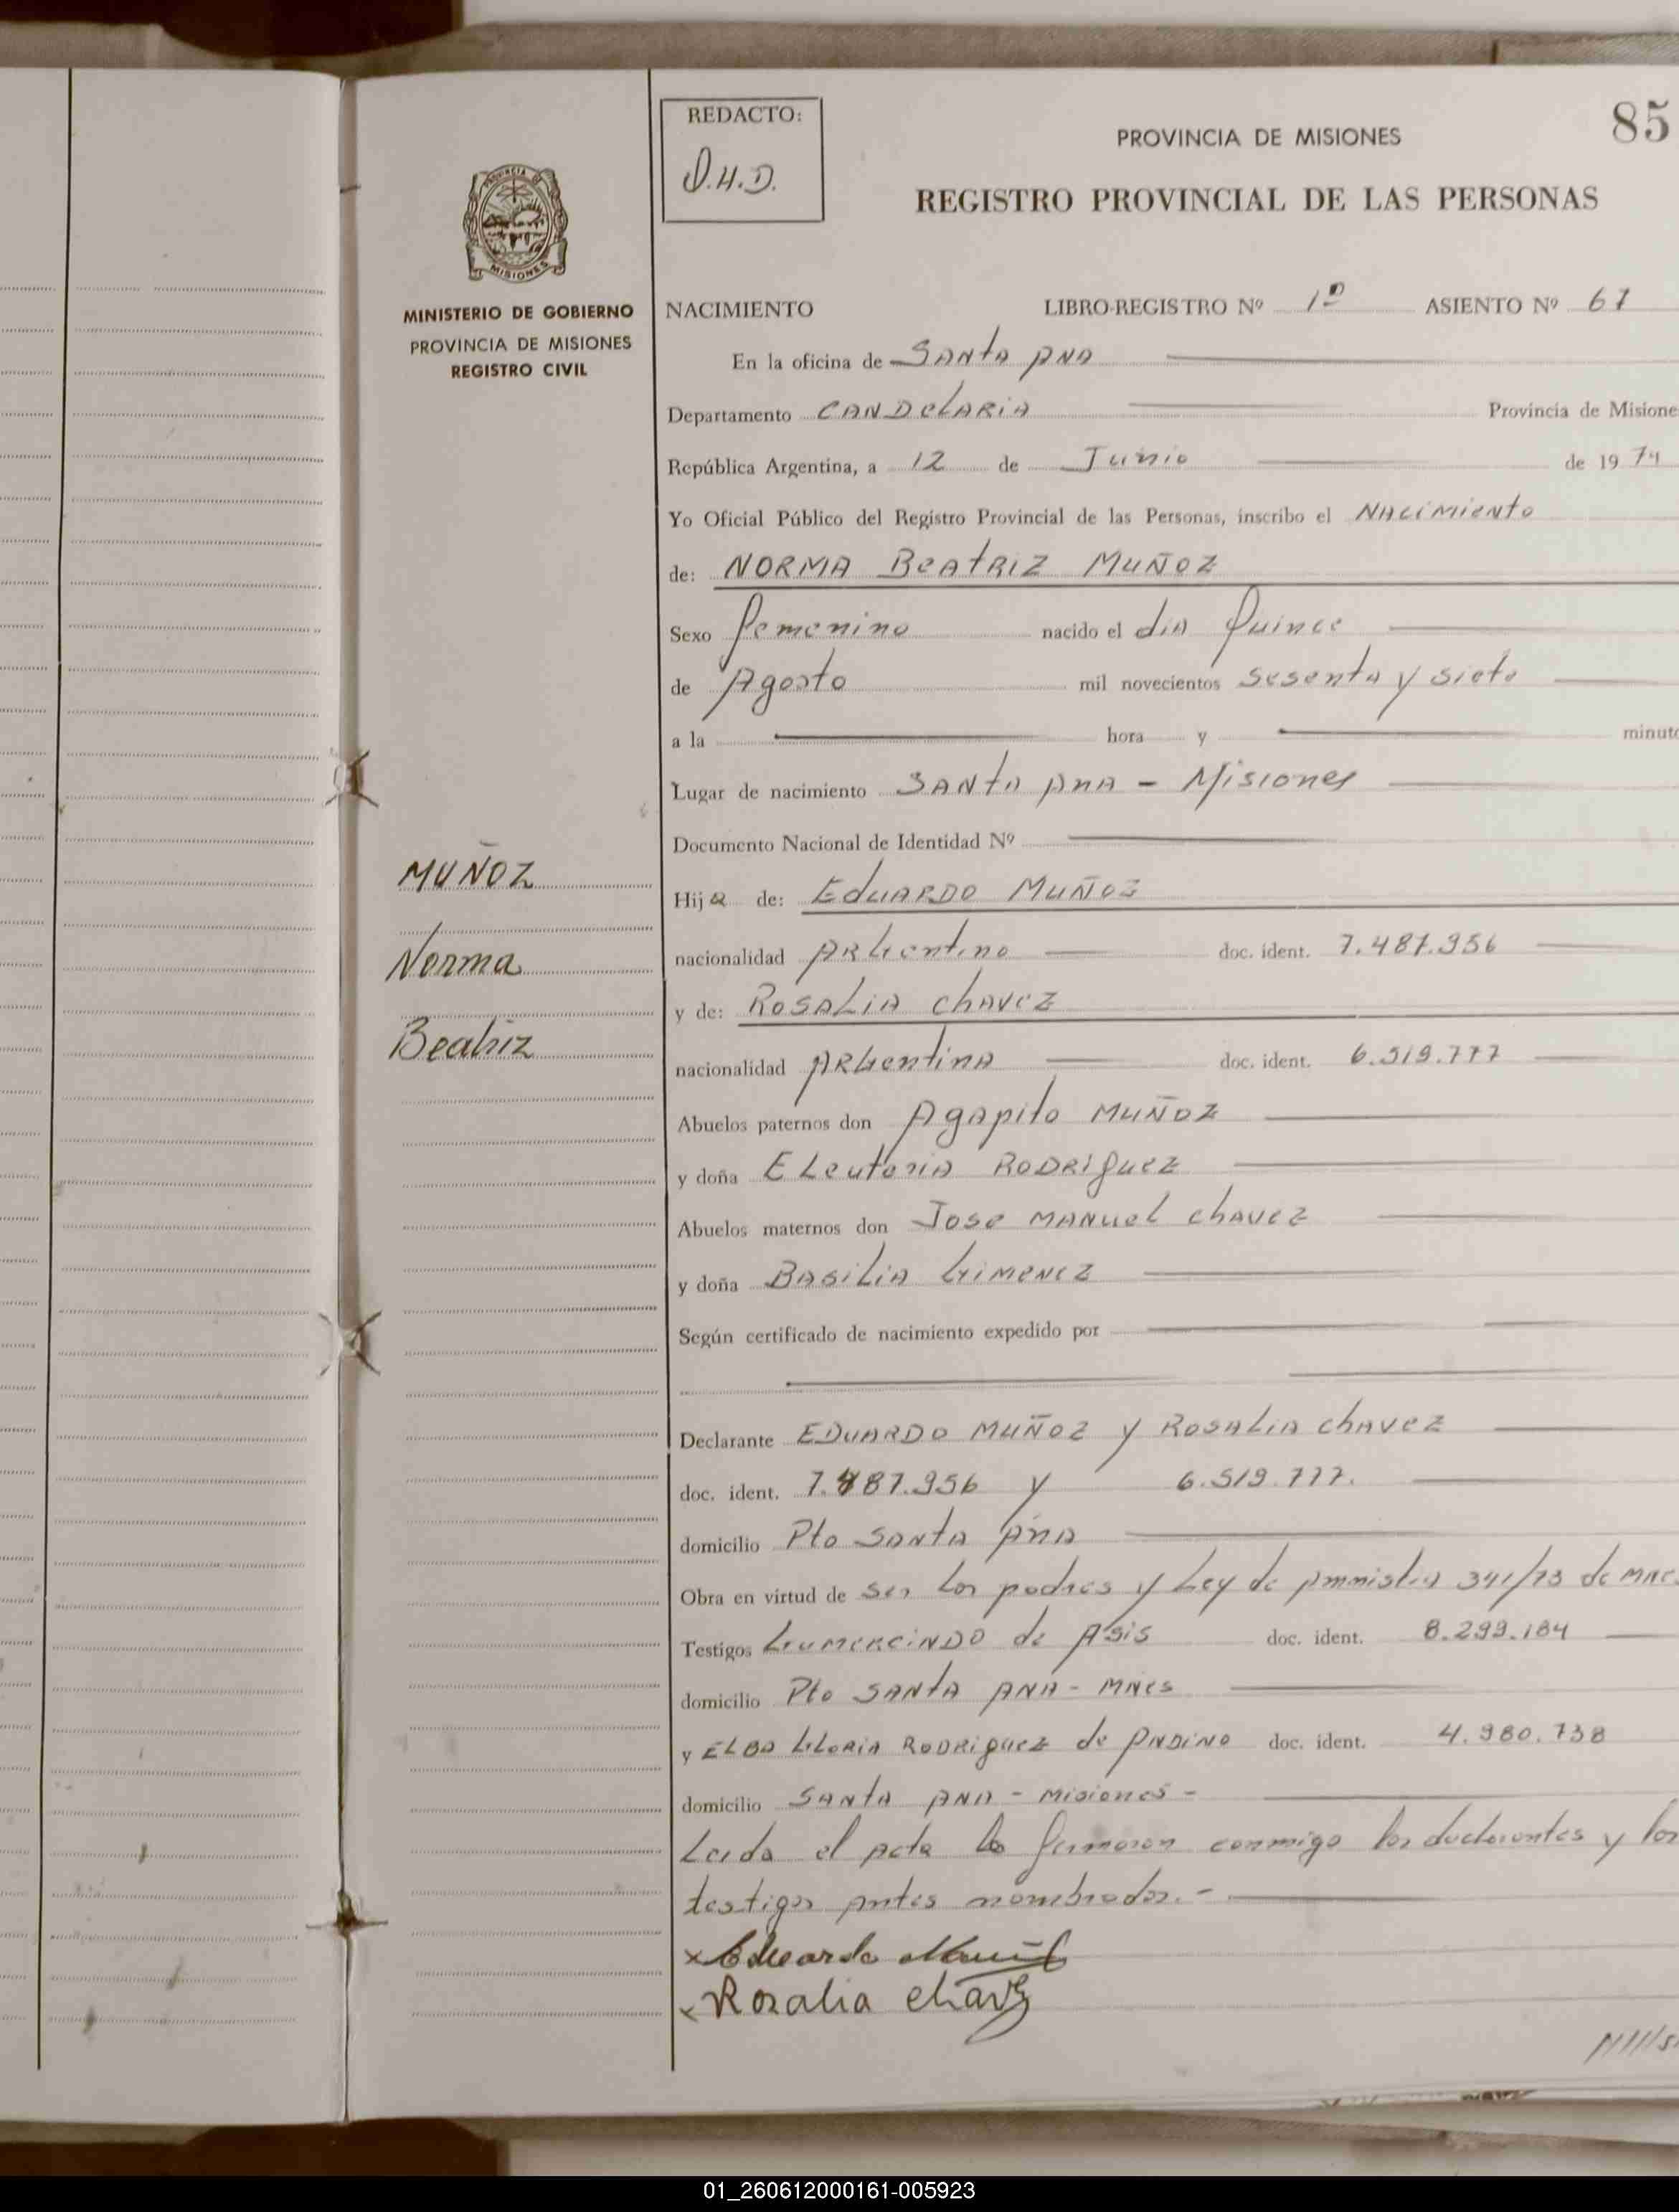 85
REDACTO:
D.H.D.
PROVINCIA DE MISIONES
REGISTRO PROVINCIAL DE LAS PERSONAS
PROVINCIA DE
MISIONES
MINISTERIO DE GOBIERNO
PROVINCIA DE MISIONES
REGISTRO CIVIL
NACIMIENTO LIBRO-REGISTRO Nº 1º ASIENTO Nº 67
En la oficina de SANTA ANA
Departamento CANDELARIA Provincia de Misione
República Argentina, a 12 de Junio de 1974
Yo Oficial Público del Registro Provincial de las Personas, inscribo el NACIMIENTO
de: NORMA BEATRIZ MUÑOZ
Sexo femenino nacido el día Quince
de Agosto mil novecientos sesenta y siete
a la hora y minuto
Lugar de nacimiento SANTA ANA - Misiones
Documento Nacional de Identidad Nº
MUÑOZ
Norma
Beatriz
Hija de: EDUARDO MUÑOZ
nacionalidad ARGENTINO doc. ident. 7.487.956
y de: ROSALIA CHAVEZ
nacionalidad ARGENTINA doc. ident. 6.519.777
Abuelos paternos don Agapito MUÑOZ
y doña ELEUTERIA RODRIGUEZ
Abuelos maternos don JOSE MANUEL CHAVEZ
y doña BASILIA GIMENEZ
Según certificado de nacimiento expedido por
Declarante EDUARDO MUÑOZ y ROSALIA CHAVEZ
doc. ident. 7.487.956 y 6.519.777.
domicilio Pto SANTA ANA
Obra en virtud de ser los padres y Ley de Ammistia 341/73 de MNE
Testigos GUMERCINDO de ASIS doc. ident. 8.299.184
domicilio Pto SANTA ANA - MNES
y ELBA GLORIA RODRIGUEZ de doc. ident. 4.980.738
domicilio SANTA ANA - Misiones -
Leida el acta la firmaron conmigo los declarantes y los
testigos antes nombrados. -
x Eduardo Muñoz
x Rosalia Chavez
01_260612000161-005923